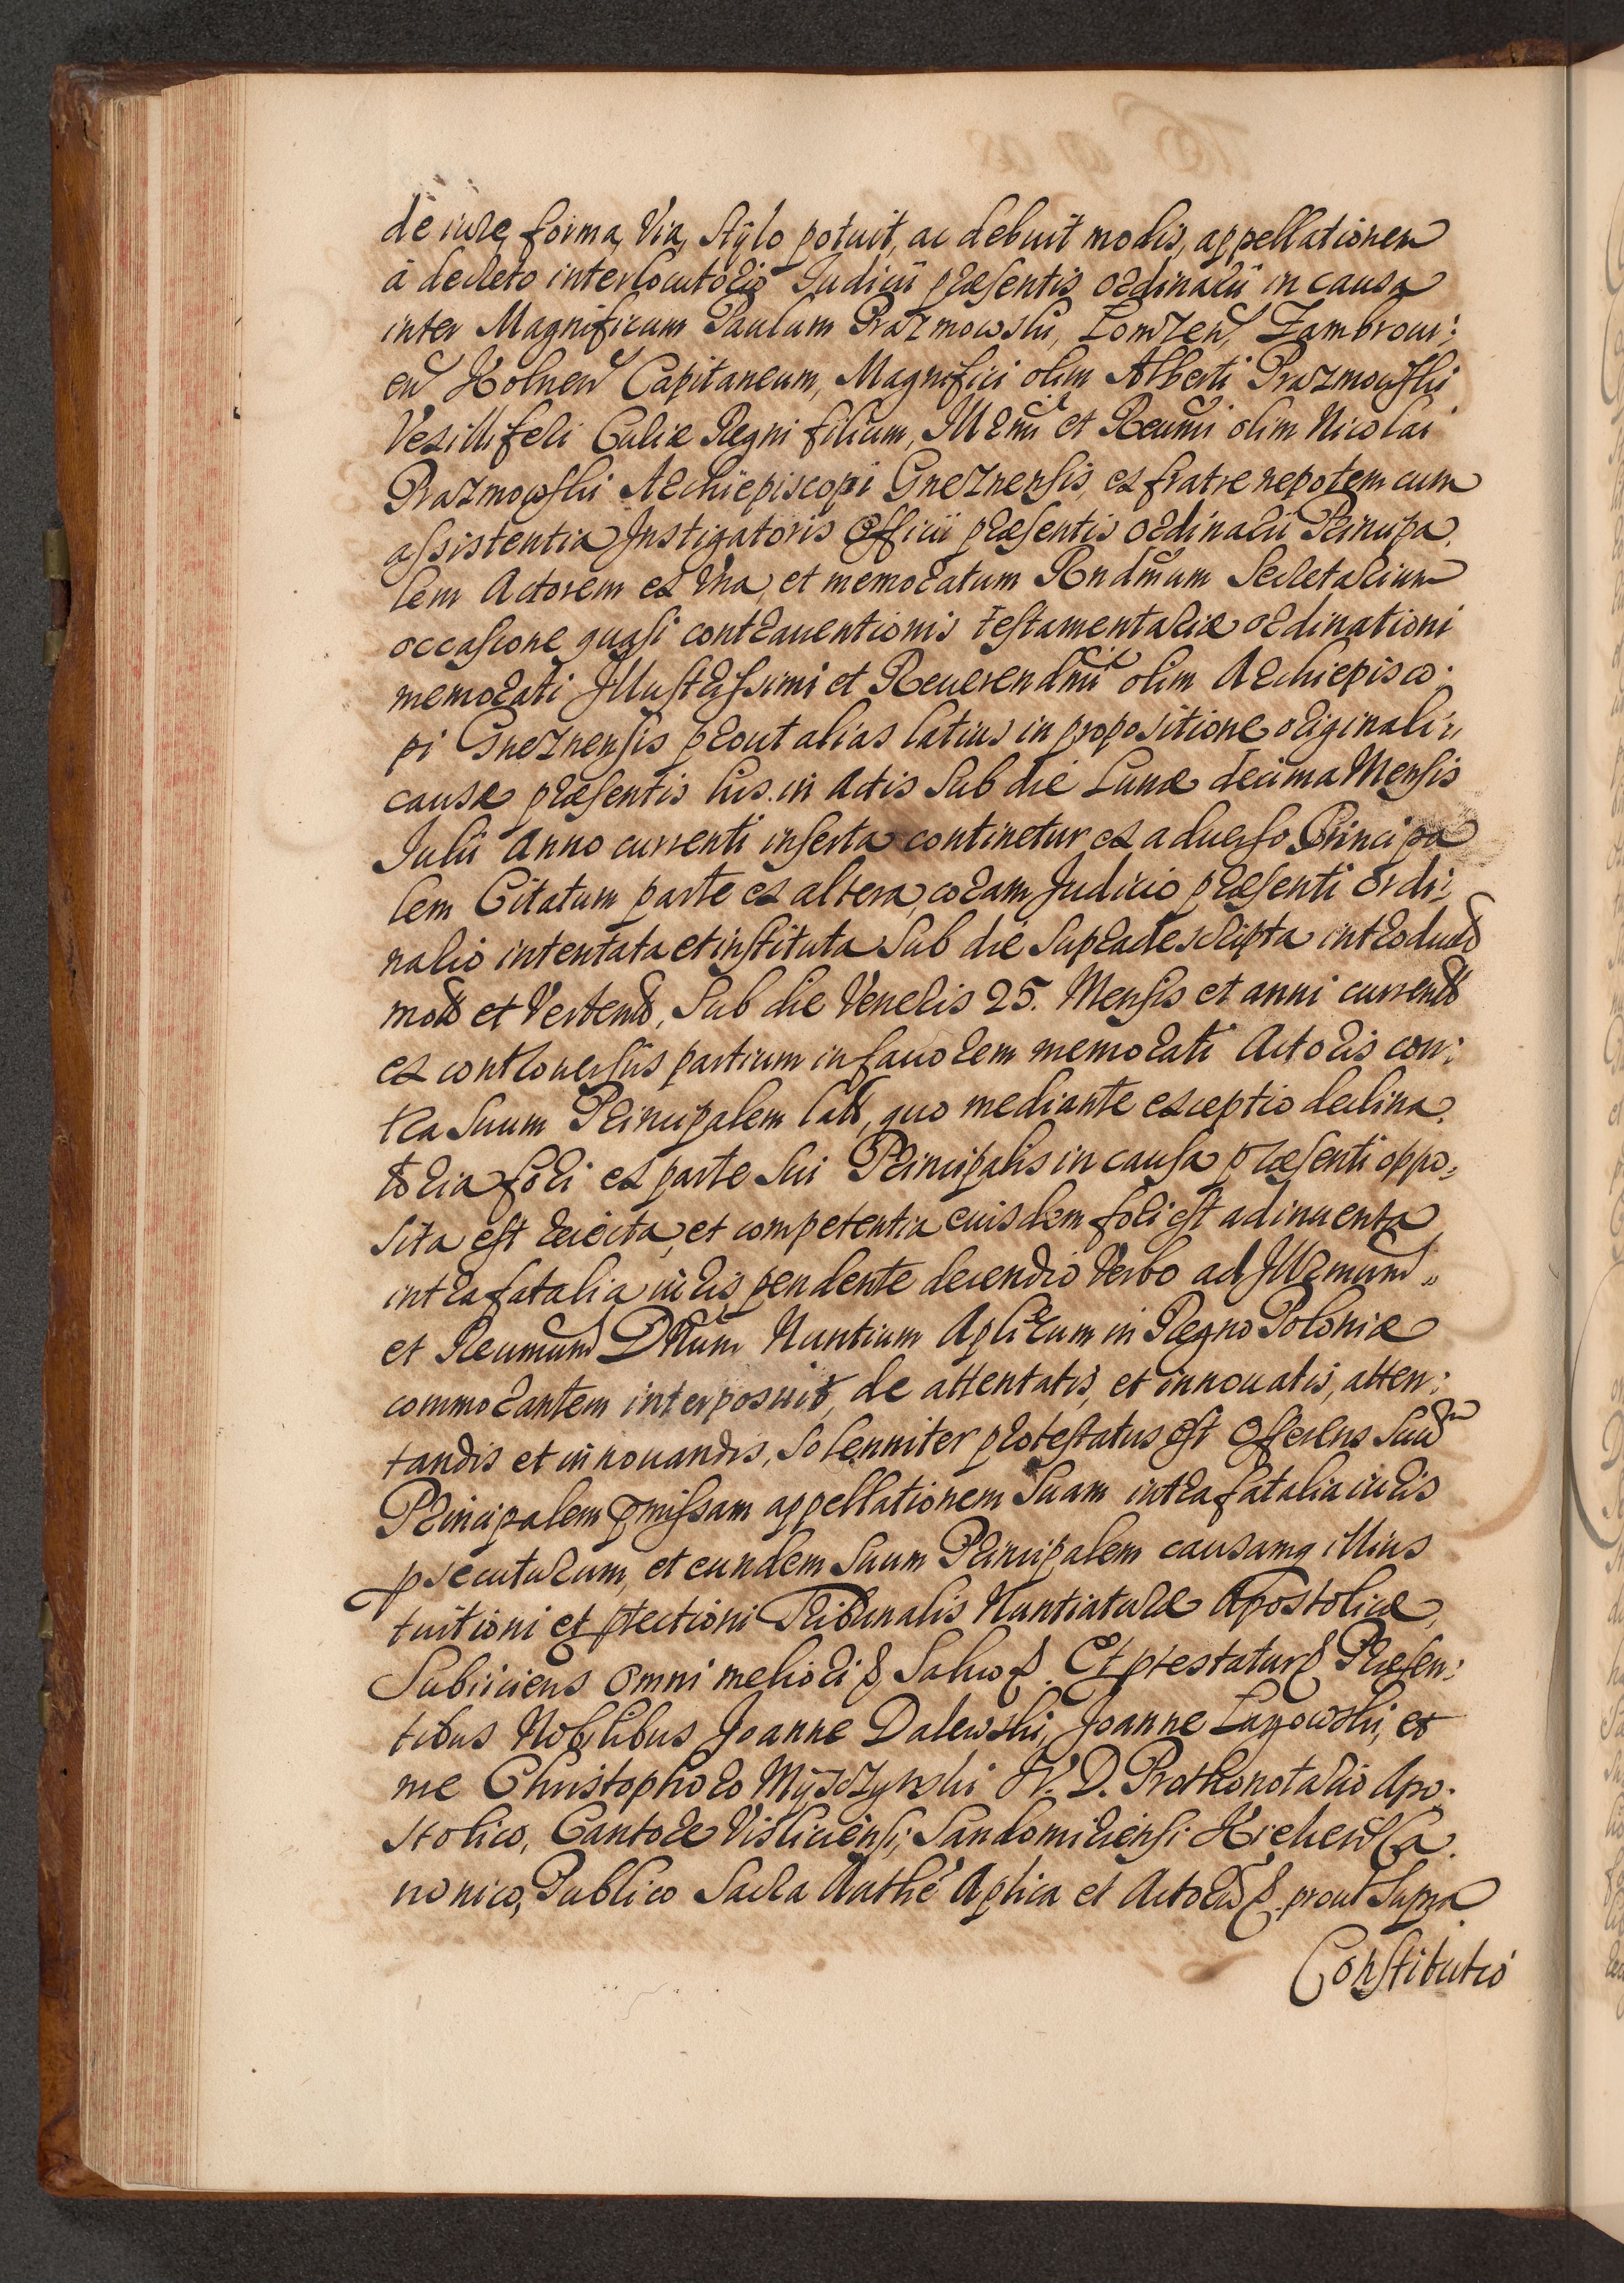 de iure, forma, Via, Stÿlo potuit, ac debuit modis, appellationem
à decreto interlocutorio Iudicii præsentis ordinarii in causa
inter Magnificum Paulum Prazmowski, Lomzeñ, Zambrovi:
eñ Kolneñ Capitaneum, Magnifici olim Alberti Prazmowski
Vexilliferi Curiæ Regni filium, Illrmi et Reumi olim Nicolai
Prazmowski Archiepiscopi Gneznensis, ex fratre nepotem cum
assistentia Instigatoris Officii præsentis ordinarii Principa
lem Actorem ex Vna, et memoratum Rndmum Secretarium
occasione quasi contrauentionis testamentariæ ordinationi
memorati Illustrissimi et Reuerendmi olim Archiepisco:
pi Gneznensis prout alias latius in propositione originali
causæ præsentis huis. in Actis Sub die Lunæ decima Mensis
Iulii Anno currenti inserta continetur ex aduerso Principa
lem Citatum parte ex altera, coram Judicio præsenti ordi:
nario intentata et instituta Sub die Supradescripta introduct
mot et Vertent, Sub die Veneris 25. Mensis et anni current
ex controuersiis partium in fauorem memorati Actoris con:
tra Suum Principalem lat, quo mediante exceptio declina
toria fori ex parte Sui Principalis in causa præsenti oppo,
sita est reiecta, et competentia eiusdem fori est adinuenta
intra fatalia iuris pendente decendio Verbo ad Illrmum
et Reumum Dnum Nuntium Aplicum in Regno Poloniæ
commorantem interposuit, de attentatis, et innouatis, atten:
tandis et innouandis, Solenniter protestatus est Offerens Suum
Principalem pmissam appellationem Suam intra fatalia iuris
psecuturum, et eundem Suum Principalem causamq illius
tuitioni et ptectioni Tribunalis Nuntiaturæ Apostolicæ,
Subiiciens Omni meliori & Saluo &. Et ptestatur & Præsen:
tibus Nobilibus Joanne Dalewski, Joanne Lagowski, et
me Christophoro Mÿszczynski I.V.D. Prothonotario Apo:
stolico, Cantore Visliciensi, Sandomiriensi Kiehen Ca
nonico, Publico Sacra Authe Aplica et Actor & prout Supra
Constitutio